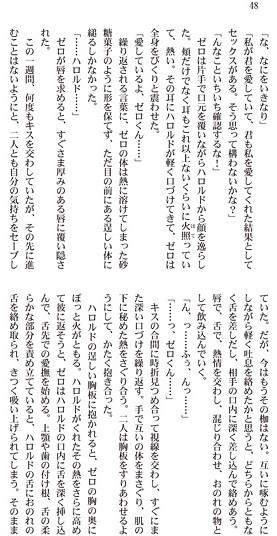 48
「な、なにをいきなり」
「私が君を愛していて、君も私を愛してくれた結果として
セックスがある。そう思って構わないかな？」
「んなこといちいち確認するな！」
ゼロは片手で口元を覆いながらハロルドから顔を逸らし
た。頬だけでなく耳もこれ以上ないくらいに火照ってい
て、熱い。その耳にハロルドが軽く口づけてきて、ゼロは
全身をびくりと震わせた。
「愛しているよ、ゼロくん…」
繰り返される言葉に、ゼロの体は熱に溶けてしまった砂
糖菓子のように形を保てず、ただ目の前にある逞しい体に
縋るしかなかった。
「……ハロルド……」
ゼロが唇を求めると、すぐさま厚みのある唇に覆い隠さ
れる。
この一週間、何度もキスを交わしていたが、その先に進
むことはないようにと、二人とも自分の気持ちをセーブし
ていた。だが、今はもうその枷はない。互いに啄むように
しながら軽く吐息を絡めたかと思うと、どちらからともな
く舌を差しだし、相手の口内に深く差し込んで絡めあう。
唇で、舌で、熱情を交わし、混じり合わせ、おのれの物と
して飲み込んでいく。
「ん、っ……ふぅ、んっ……」
「……っ、ゼロくん……」
キスの合間に時折見つめ合って視線を交わし、すぐにま
た深い口づけを繰り返す。手で互いの体をまさぐり、肌の
下に秘めた熱をさぐりあう。二人は胸板をすりあわせるよ
うにして、かたく抱き合った。
ハロルドの逞しい胸板に抱かれると、ゼロの胸の奥に
ぽっと火がともる。ハロルドがくれたその熱をさらに高め
て彼に返そうと、ゼロはハロルドの口内に舌を深く挿し込
んで、舌先での愛撫を始める。上顎や歯の付け根、舌の柔
らかな部分を責め立てていると、ハロルドの舌におのれの
舌を絡め取られ、きつく吸い上げられてしまう。そのまま